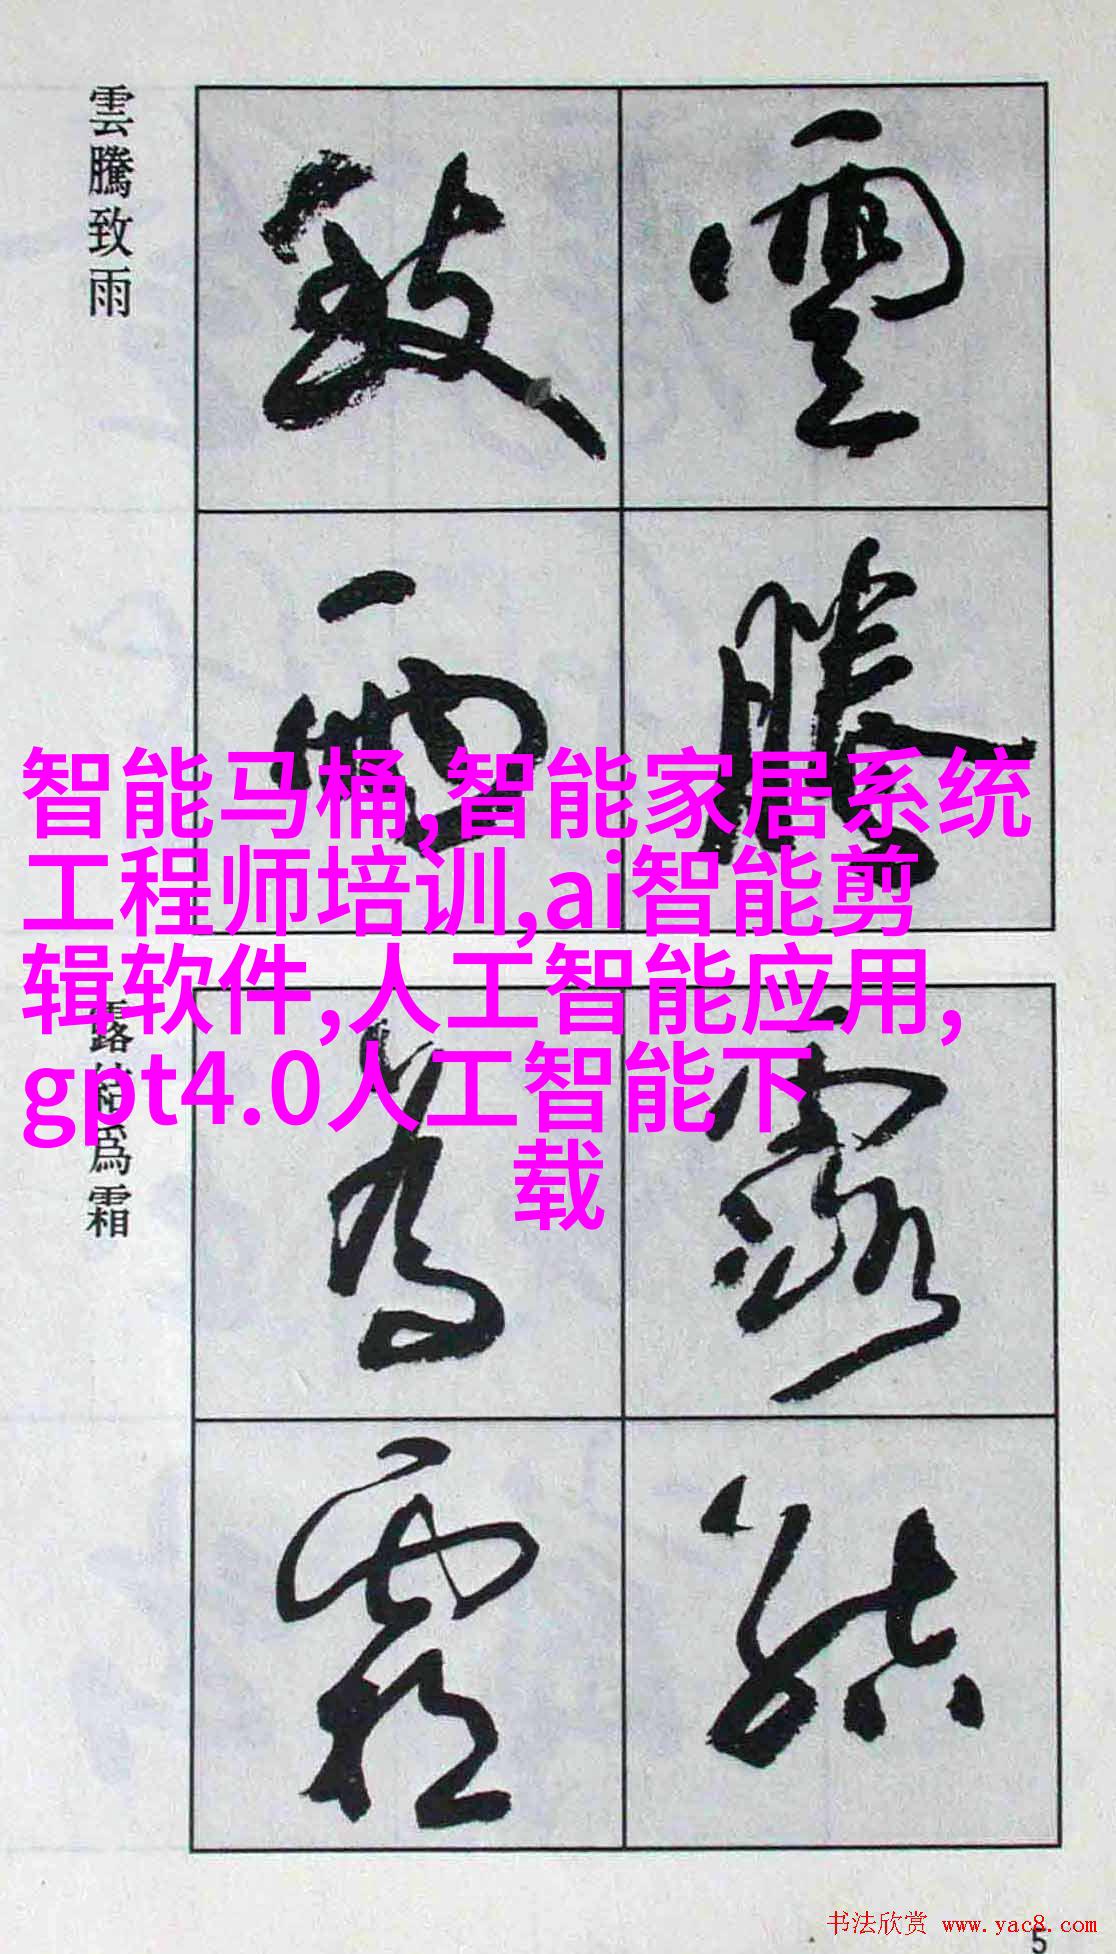 雲騰致雨
雲
騰
致
雨
智能马桶,智能家居系统
工程师培训,ai智能剪
辑软件,人工智能应用,
gpt4.0人工智能下
载
露結為霜
露
結
為
霜
书法欣赏 www.yac8.com
5